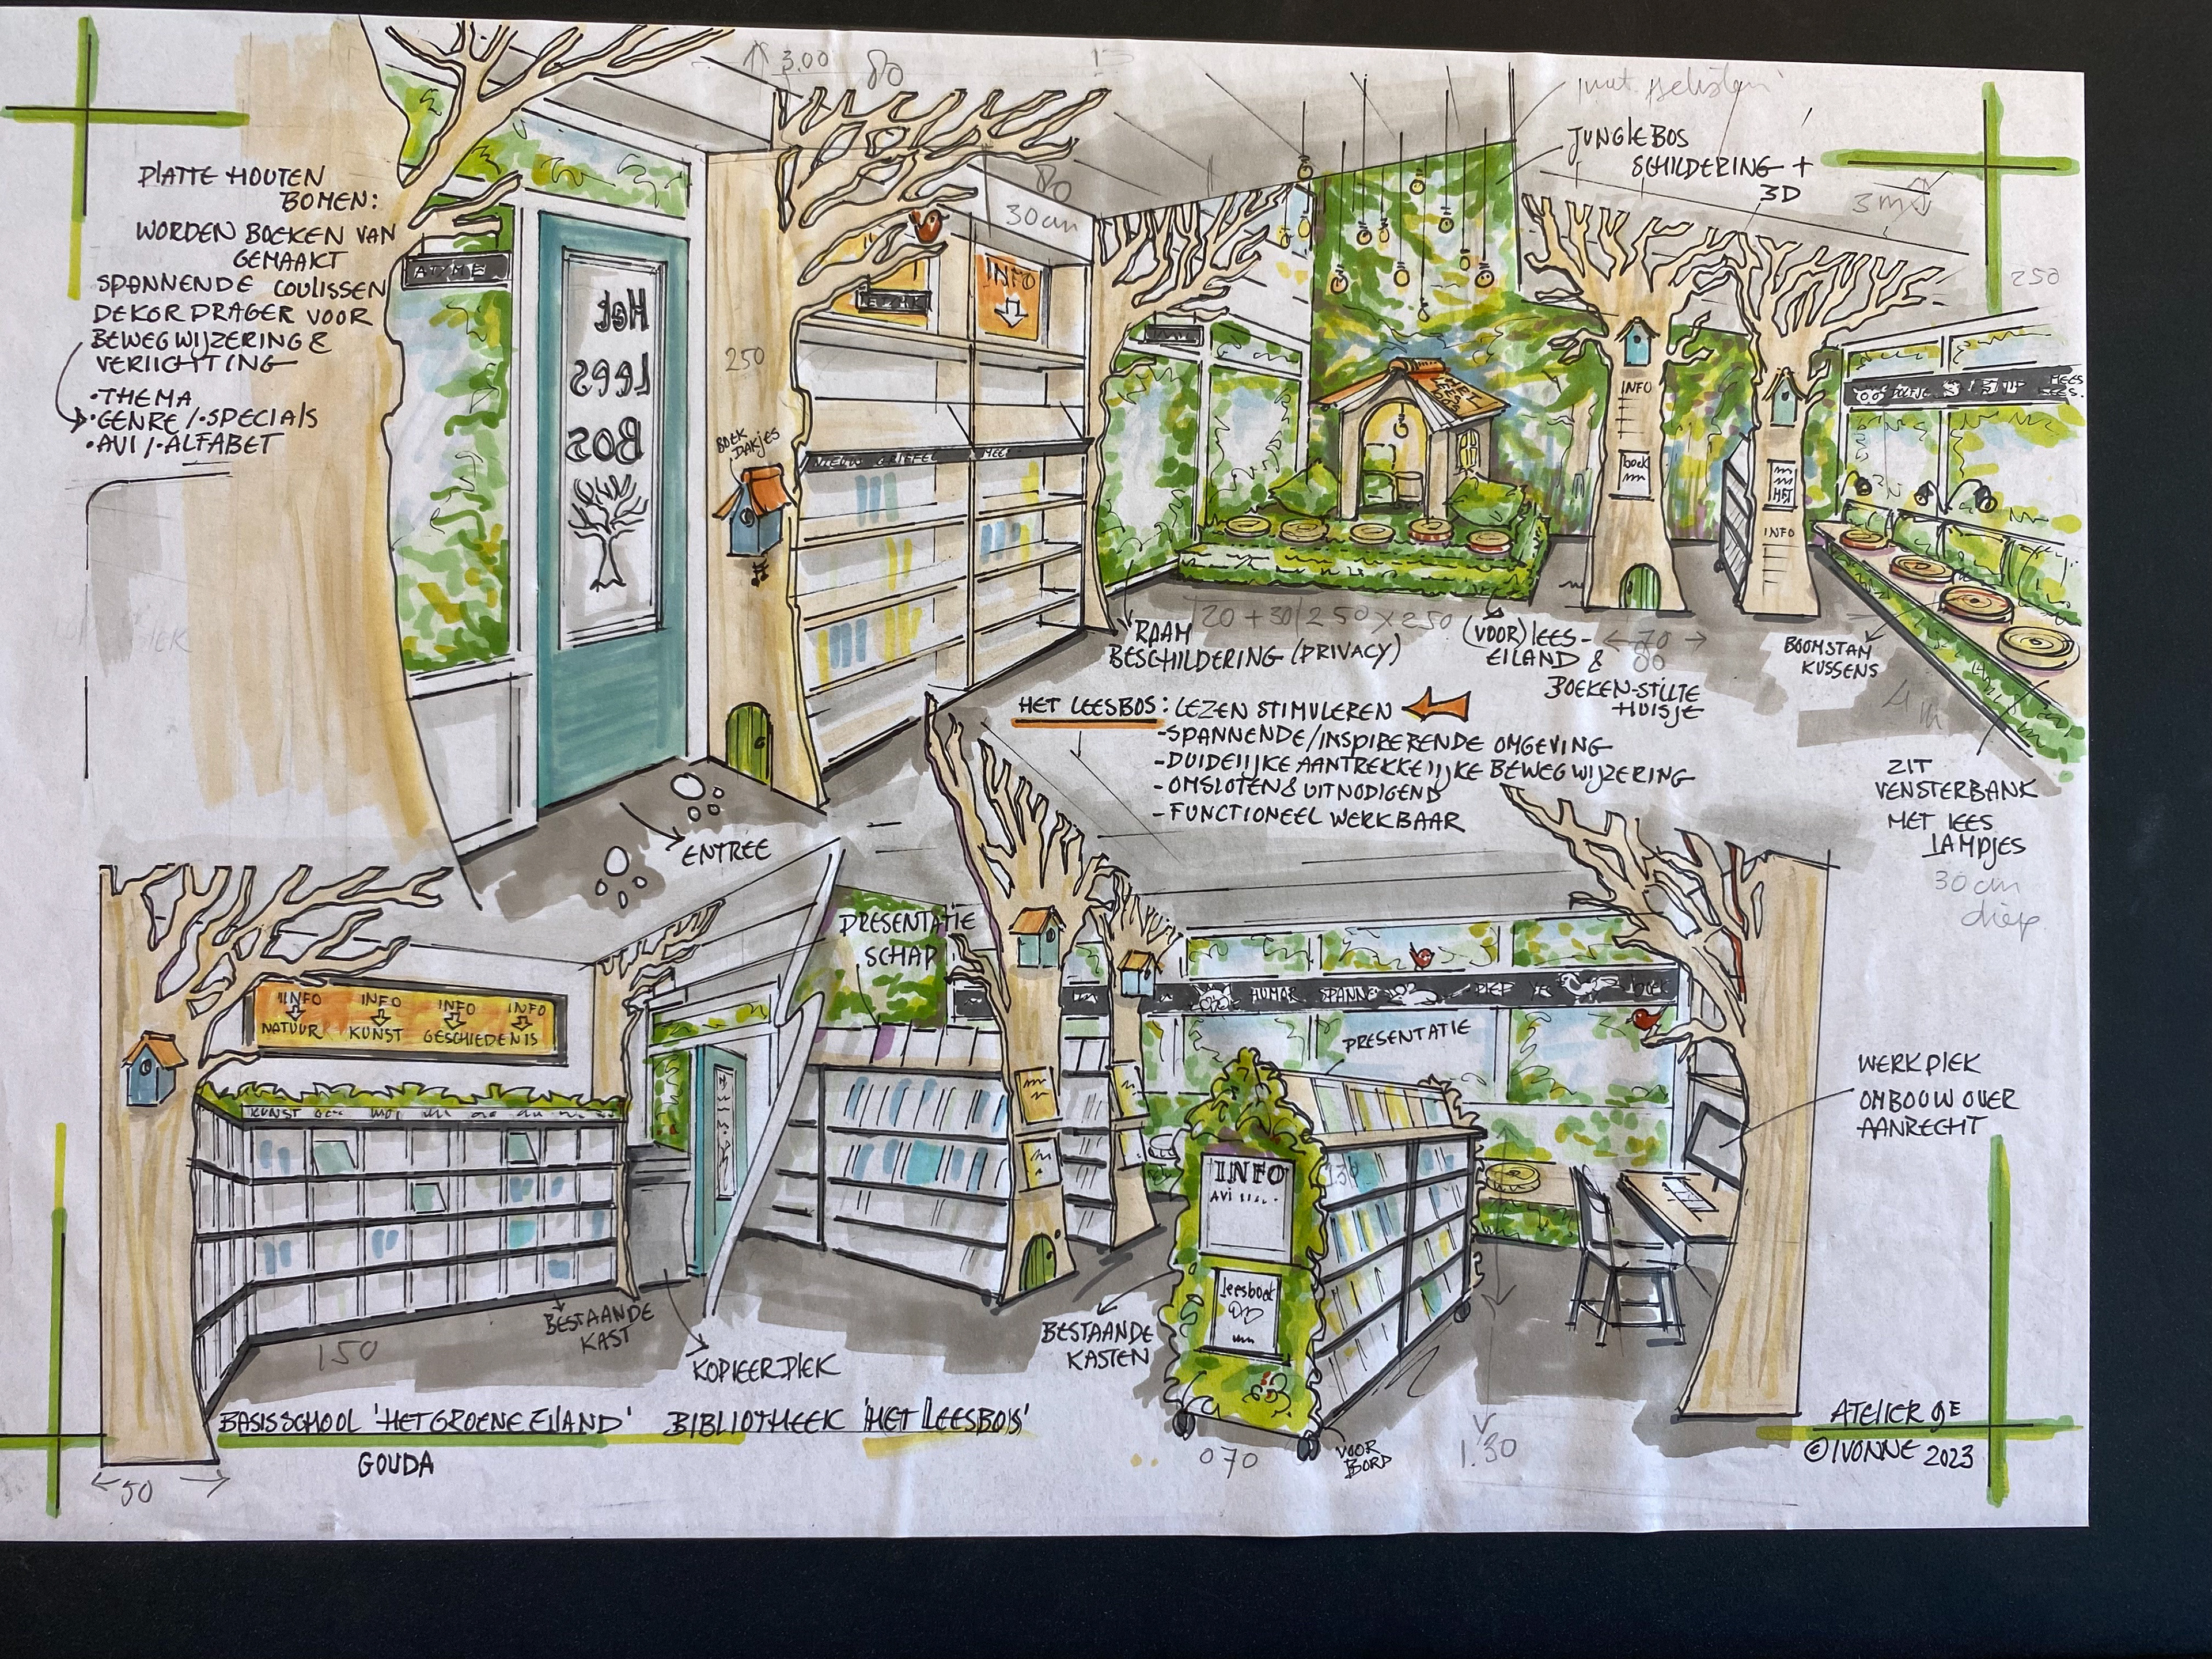 3.00
80
JUNGLEBOS
SCHILDERING +
3D
3m
250
PLATTE HOUTEN
BOMEN:
WORDEN BOEKEN VAN
GEMAAKT
SPANNENDE COULISSEN
DEKOR DRAGER VOOR
BEWEGWIJZERING &
VERLICHTING
• THEMA
• GENRE / • SPECIALS
• AVI / • ALFABET
Het
Lees
Bos
250
BOEK
DAKJES
80
30cm
INFO
NIEUW GRIFFEL
INFO
boek
INFO
RAAM
BESCHILDERING (PRIVACY)
20 + 30 250 X 250
(VOOR)LEES-
EILAND &
BOEKEN-STILTE
HUISJE
70
80
BOOMSTAM
KUSSENS
ZIT
VENSTERBANK
MET LEES
LAMPJES
30 cm
diep
ENTREE
HET LEESBOS: LEZEN STIMULEREN
-SPANNENDE/INSPIRERENDE OMGEVING
-DUIDELIJKE AANTREKKELIJKE BEWEGWIJZERING
-OMSLOTEN & UITNODIGEND
-FUNCTIONEEL WERKBAAR
INFO INFO INFO INFO
NATUUR KUNST GESCHIEDENIS
KUNST
BESTAANDE
KAST
150
KOPIEERPLEK
PRESENTATIE
SCHAP
HUMOR SPANNE
PRESENTATIE
BESTAANDE
KASTEN
INFO
AVI
leesboek
130
070
VOOR
BORD
1.30
WERKPLEK
OMBOUW OVER
AANRECHT
BASISSCHOOL 'HET GROENE EILAND' BIBLIOTHEEK 'HET LEESBOS'
GOUDA
50
ATELIER 9E
© IVONNE 2023